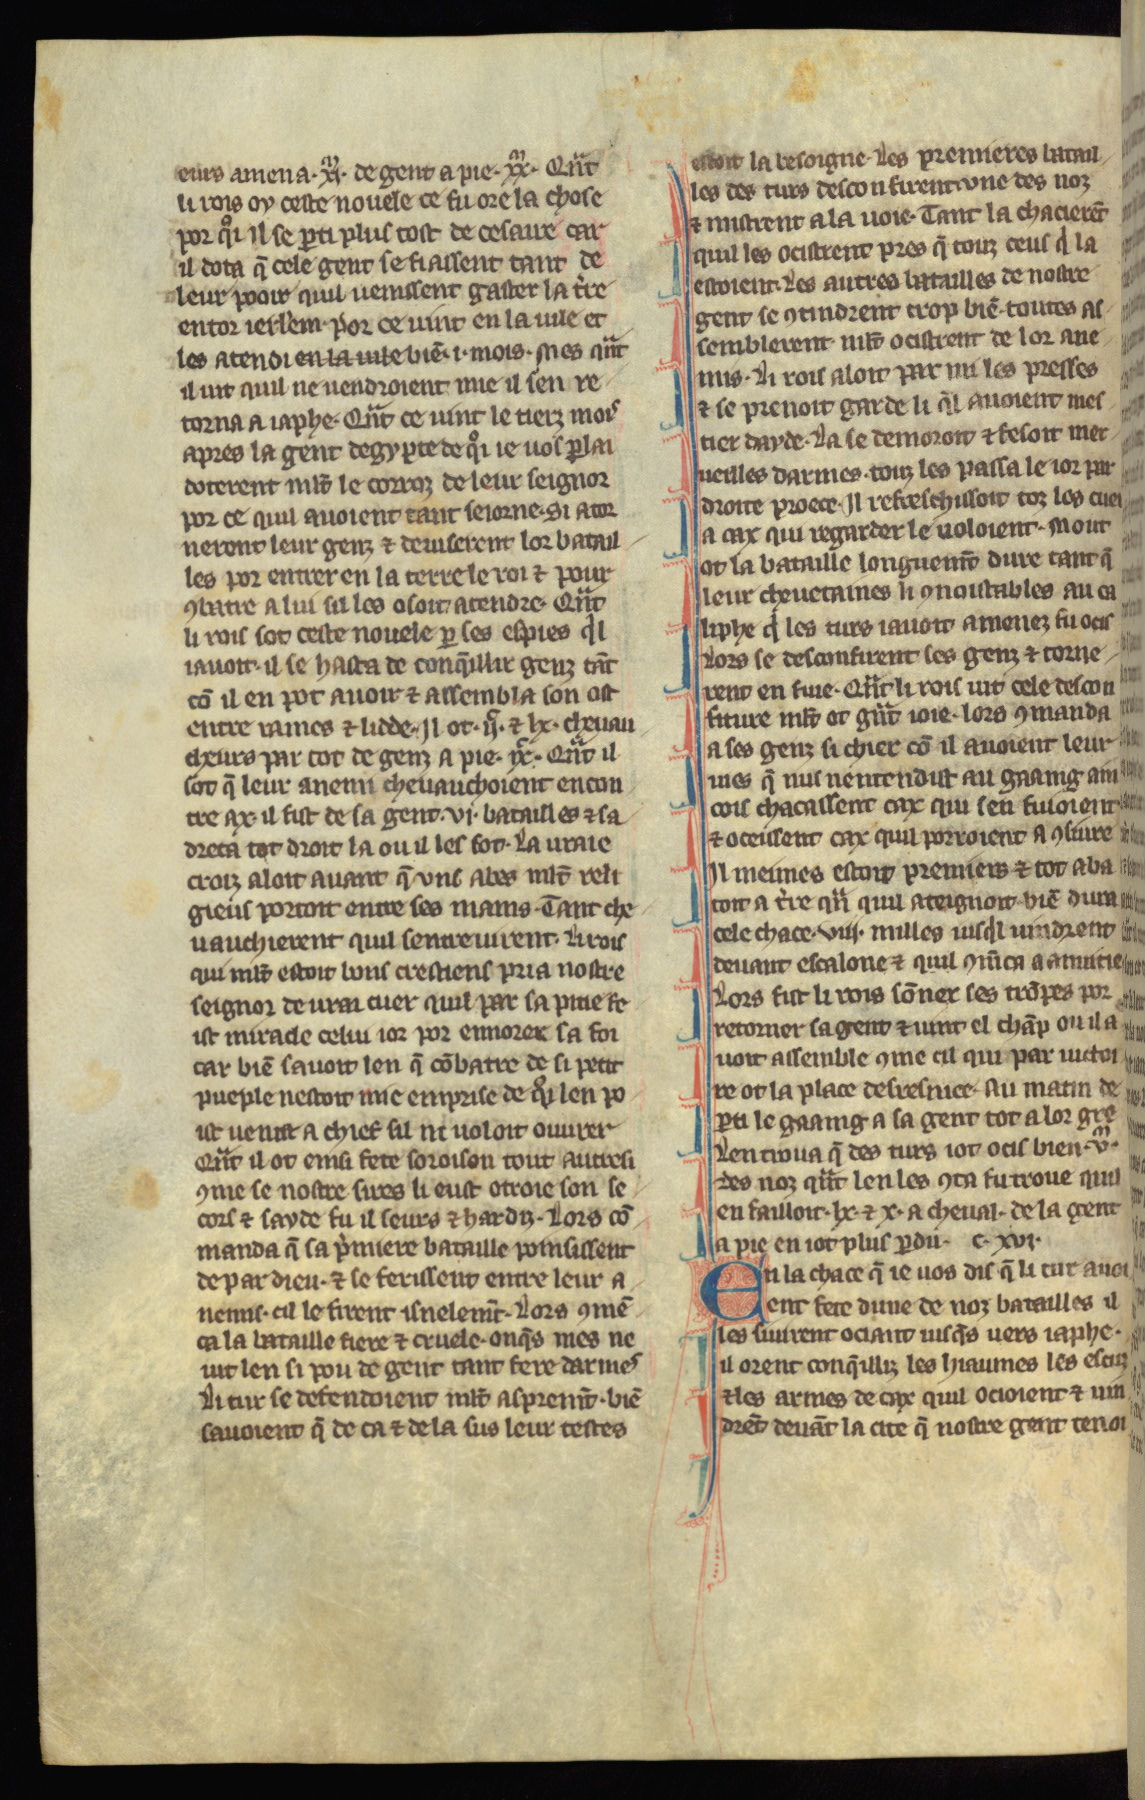 eurs amena·xͫi· de gent a pie·xͫx· Qn̄t
li rois oy ceste nouele ce fu ore la chose
por qͦi il se ꝑti plus tost de cesaire car
il dota q̄ cele gent se fiassent tant de
leur pooir quil uenissent gaster la tr̄e
entor ierl̄em· por ce uint en la uile et
les atendi en la uile biē·i· mois· Mes qn̄t
il uit quil ne uendroient mie il sen re
torna a iaphe· Qn̄t ce uint le tierz mois
apres la gent degypte de qͦi ie uos ꝑlai
doterent ml̄t le corroz de leur seignor
por ce quil auoient tant seiorne· Si ator
nerent leur genz ⁊ deuiserent lor batail
les por entrer en la terre le roi ⁊ pour
ꝯbatre a lui sil les osoit atendre· Qn̄t
li rois sot ceste nouele ꝑ ses espies qͥl
iauoit· il se hasta de conq̄illir genz tāt
cō il en pot auoir ⁊ assembla son ost
entre rames ⁊ lidde· Il ot· ij·ͨ ⁊ lx· cheuau
cheurs par tot de genz a pie· ix·ͨ Qn̄t il
sot q̄ leur anemi cheuauchoient encon
tre ax· il fist de sa gent·vi· batailles ⁊ sa
dreca tot droit la ou il les sot· La uraie
croiz aloit auant q̄ vns abes ml̄t reli
gieus portoit entre ses mains· Tant che
uauchierent quil sentreuirent· Li rois
qui ml̄t estoit bons crestiens pria nostre
seignor de urai cuer quil par sa pitie fe
ist miracle celui ior por ennorer sa foi
car biē sauoit len q̄ cōbatre de si petit
pueple nestoit mie emprise de qͦi len po
ist uenir a chief sil ni uoloit ouurer
Qn̄t il ot einsi fete soroison tout autresi
ꝯme se nostre sires li eust otroie son se
cors ⁊ sayde fu il seurs ⁊ hardiz· Lors cō
manda q̄ sa pͥmiere bataille poinsissent
de par dieu· ⁊ se ferissent entre leur a
nemis· cil le firent isnelem̄t· Lors ꝯmē
ca la bataille fiere ⁊ cruele· onq̄s mes ne
uit len si pou de gent tant fere darmes
Li tur se defendoient ml̄t asprem̄t· biē
sauoient q̄ de ca ⁊ de la sus leur testes
estoit la besoigne· Les premieres batail
les des turs desconfirent vne des noz
⁊ mistrent a la uoie· Tant la chacierēt
quil les ocistrent pres q̄ touz ceus qͥ la
estoient· Les autres batailles de nostre
gent se ꝯtindrent trop biē· toutes as
semblerent· ml̄t ocistrent de lor ane
mis· Li rois aloit par mi les presses
⁊ se prenoit garde li qͥl auoient mes
tier dayde· La se demoroit ⁊ fesoit mer
ueilles darmes· touz les passa le ior par
droite proece· Il refreschissoit toz les cuer
a cax qui regarder le uoloient· Mout
ot la bataille longuem̄t dure tant q̄
leur cheuetaines li ꝯnoustables au ca
liphe qͥ les turs iauoit amenez fu ocis
Lors se desconfirent ses genz ⁊ torne
rent en fuie· Qn̄t li rois uit cele descon
fiture ml̄t ot gn̄t ioie· lors ꝯmanda
a ses genz si chier cō il auoient leur
uies q̄ nus nentendist au gaaing ain
cois chacassent cax qui sen fuioient
⁊ oceissent cax quil porroient aꝯsiure
Il meimes estoit premiers ⁊ tot aba
toit a tr̄e qn̄ quil ateignoit· biē dura
cele chace·viij· milles iusqͥl uindrent
deuant escalone ⁊ quil ꝯm̄ca a anuitie
Lors fist li rois sōner ses trōpes por
retorner sa gent ⁊ uint el chāp ou il a
uoit assemble ꝯme cil qui par uictoi
re ot la place desresnice· Au matin de
ꝑti le gaaing a sa gent tot a lor gre
Len troua q̄ des turs iot ocis bien·vͫ·
des noz qn̄t len les ꝯta fu troue quil
en failloit·lx·⁊ x· a cheual· de la gent
a pie en iot plus ꝑdu· c·xvi·
En la chace q̄ ie uos dis q̄ li tur auoi
ent fete dune de noz batailles il
les siuirent ociant iusq̄s uers iaphe·
il orent conq̄illiz les hiaumes les escuz
⁊ les armes de cax quil ocioient ⁊ uin
drēt deuāt la cite q̄ nostre gent tenoi